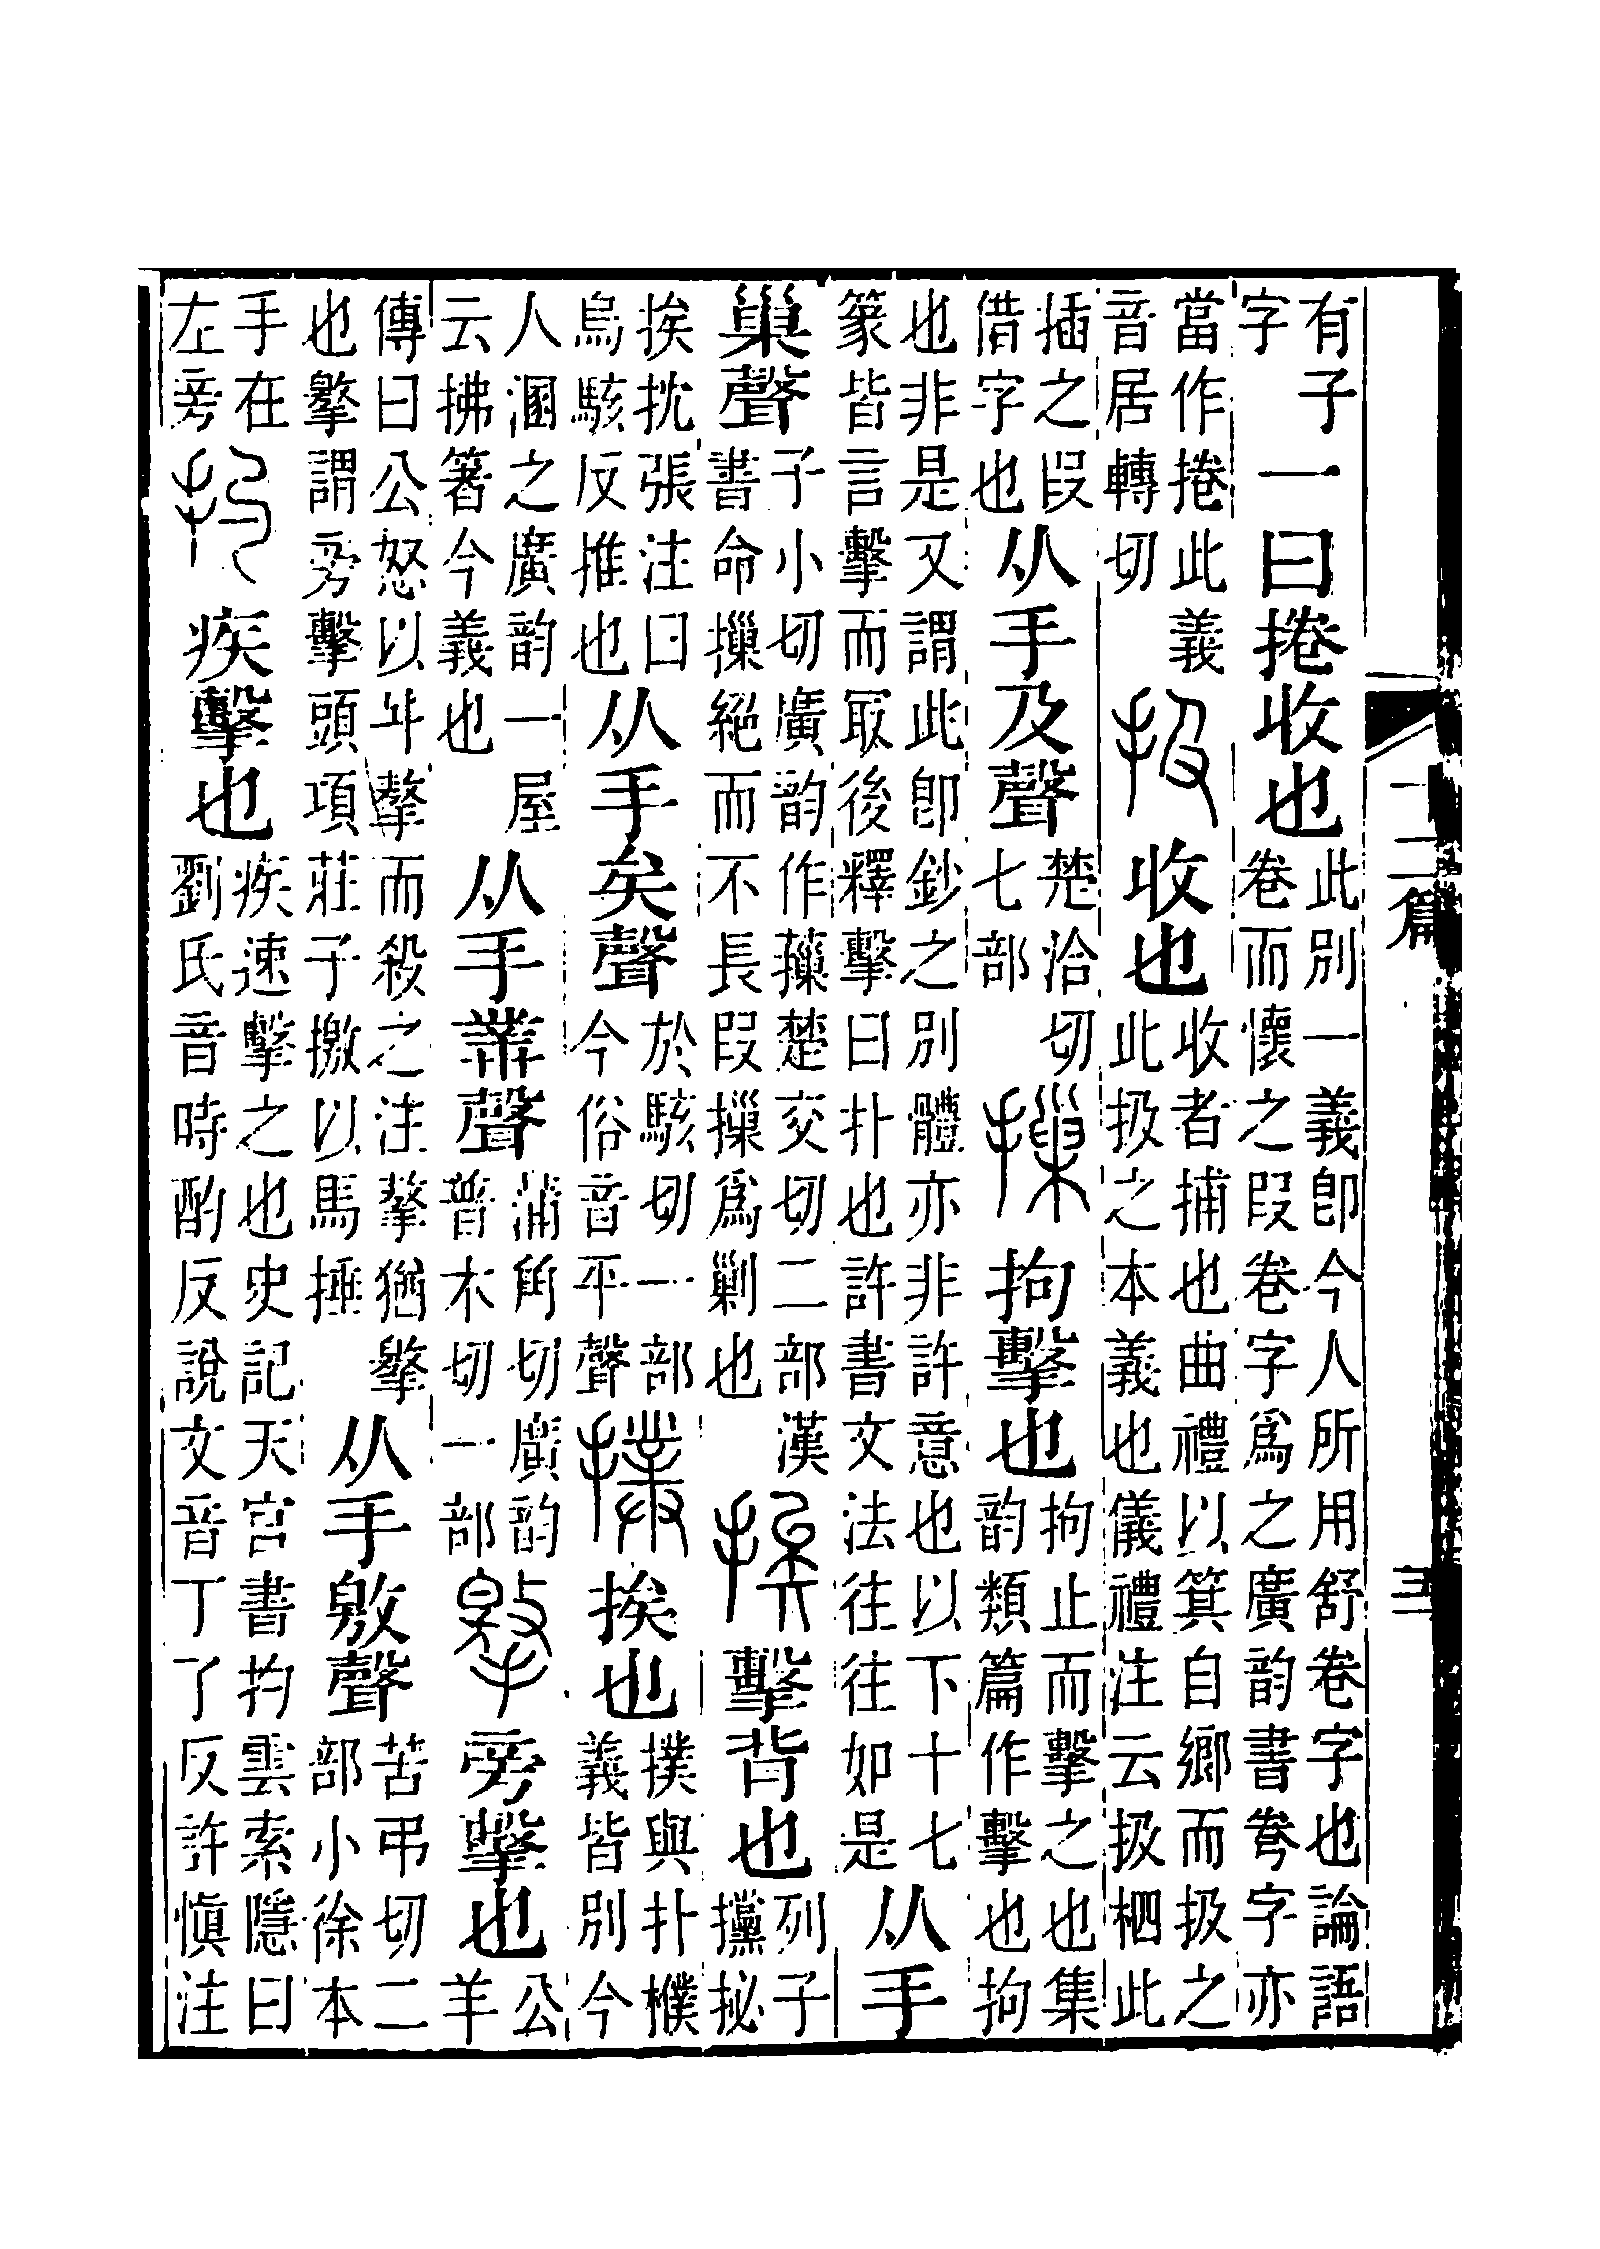 十二篇 三
有子字一曰捲收也此別一義卽今人所用舒卷字也論語卷而懷之叚卷字爲之廣韵書弮字亦
當作捲此義音居轉切扱收也收者捕也曲禮以箕自鄉而扱之此扱之本義也儀禮注云扱柶此
插之叚借字也从手及聲楚洽切七部摷拘擊也拘止而擊之也集韵類篇作擊也拘
也非是又謂此卽鈔之別體亦非許意也以下十七篆皆言擊而冣後釋擊曰扑也許書文法往往如是从手
巢聲子小切廣韵作䕅楚交切二部漢書命摷絕而不長叚摷爲剿也挨擊背也列子攩㧙
挨抌張注曰烏駭反推也从手矣聲於駭切一部今俗音平聲撲挨也撲與扑檏義皆別今
人溷之廣韵一屋云拂著今義也从手菐聲蒲角切廣韵普木切一部擎旁擊也公羊
傳曰公怒以斗摮而殺之注摮猶擎也擎謂旁擊頭項莊子撽以馬捶从手敫聲苦弔切二部小徐本
手在左旁扚疾擊也疾速擊之也史記天官書扚雲索隱曰劉氏音時酌反說文音丁了反許愼注